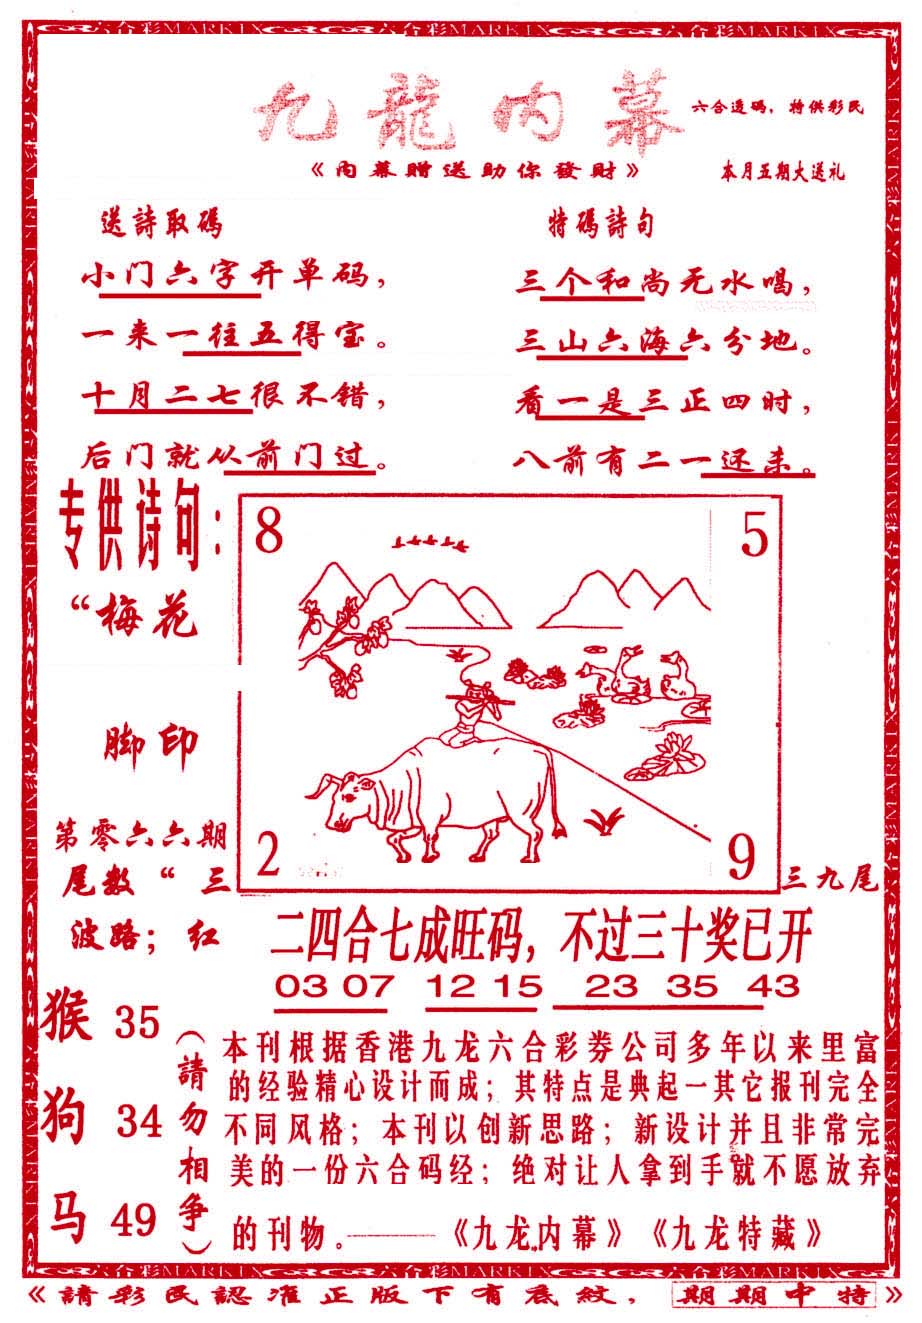 六合彩MARKIX 六合彩MARKIX 六合彩MARKIX
九龍内幕
六合透码，特供彩民
《内幕赠送助你發財》
本月五期大送礼
送詩取碼
小门六字开单码，
一来一往五得宝。
十月二七很不错，
后门就从前门过。
特碼詩句
三个和尚无水喝，
三山六海六分地。
看一是三正四时，
八前有二一还未。
专供诗句：
“梅花
脚印
第零六六期
尾数“三
波路；红
8
5
2
9
三九尾
二四合七成旺码，不过三十奖已开
03 07 12 15 23 35 43
猴 35
狗 34
马 49
（請勿相争）
本刊根据香港九龙六合彩券公司多年以来里富
的经验精心设计而成；其特点是典起一其它报刊完全
不同风格；本刊以创新思路；新设计并且非常完
美的一份六合码经；绝对让人拿到手就不愿放弃
的刊物。——《九龙内幕》《九龙特藏》
六合彩MARKIX 六合彩MARKIX 六合彩MARKIX
《請彩民認准正版下有底紋，期期中特》